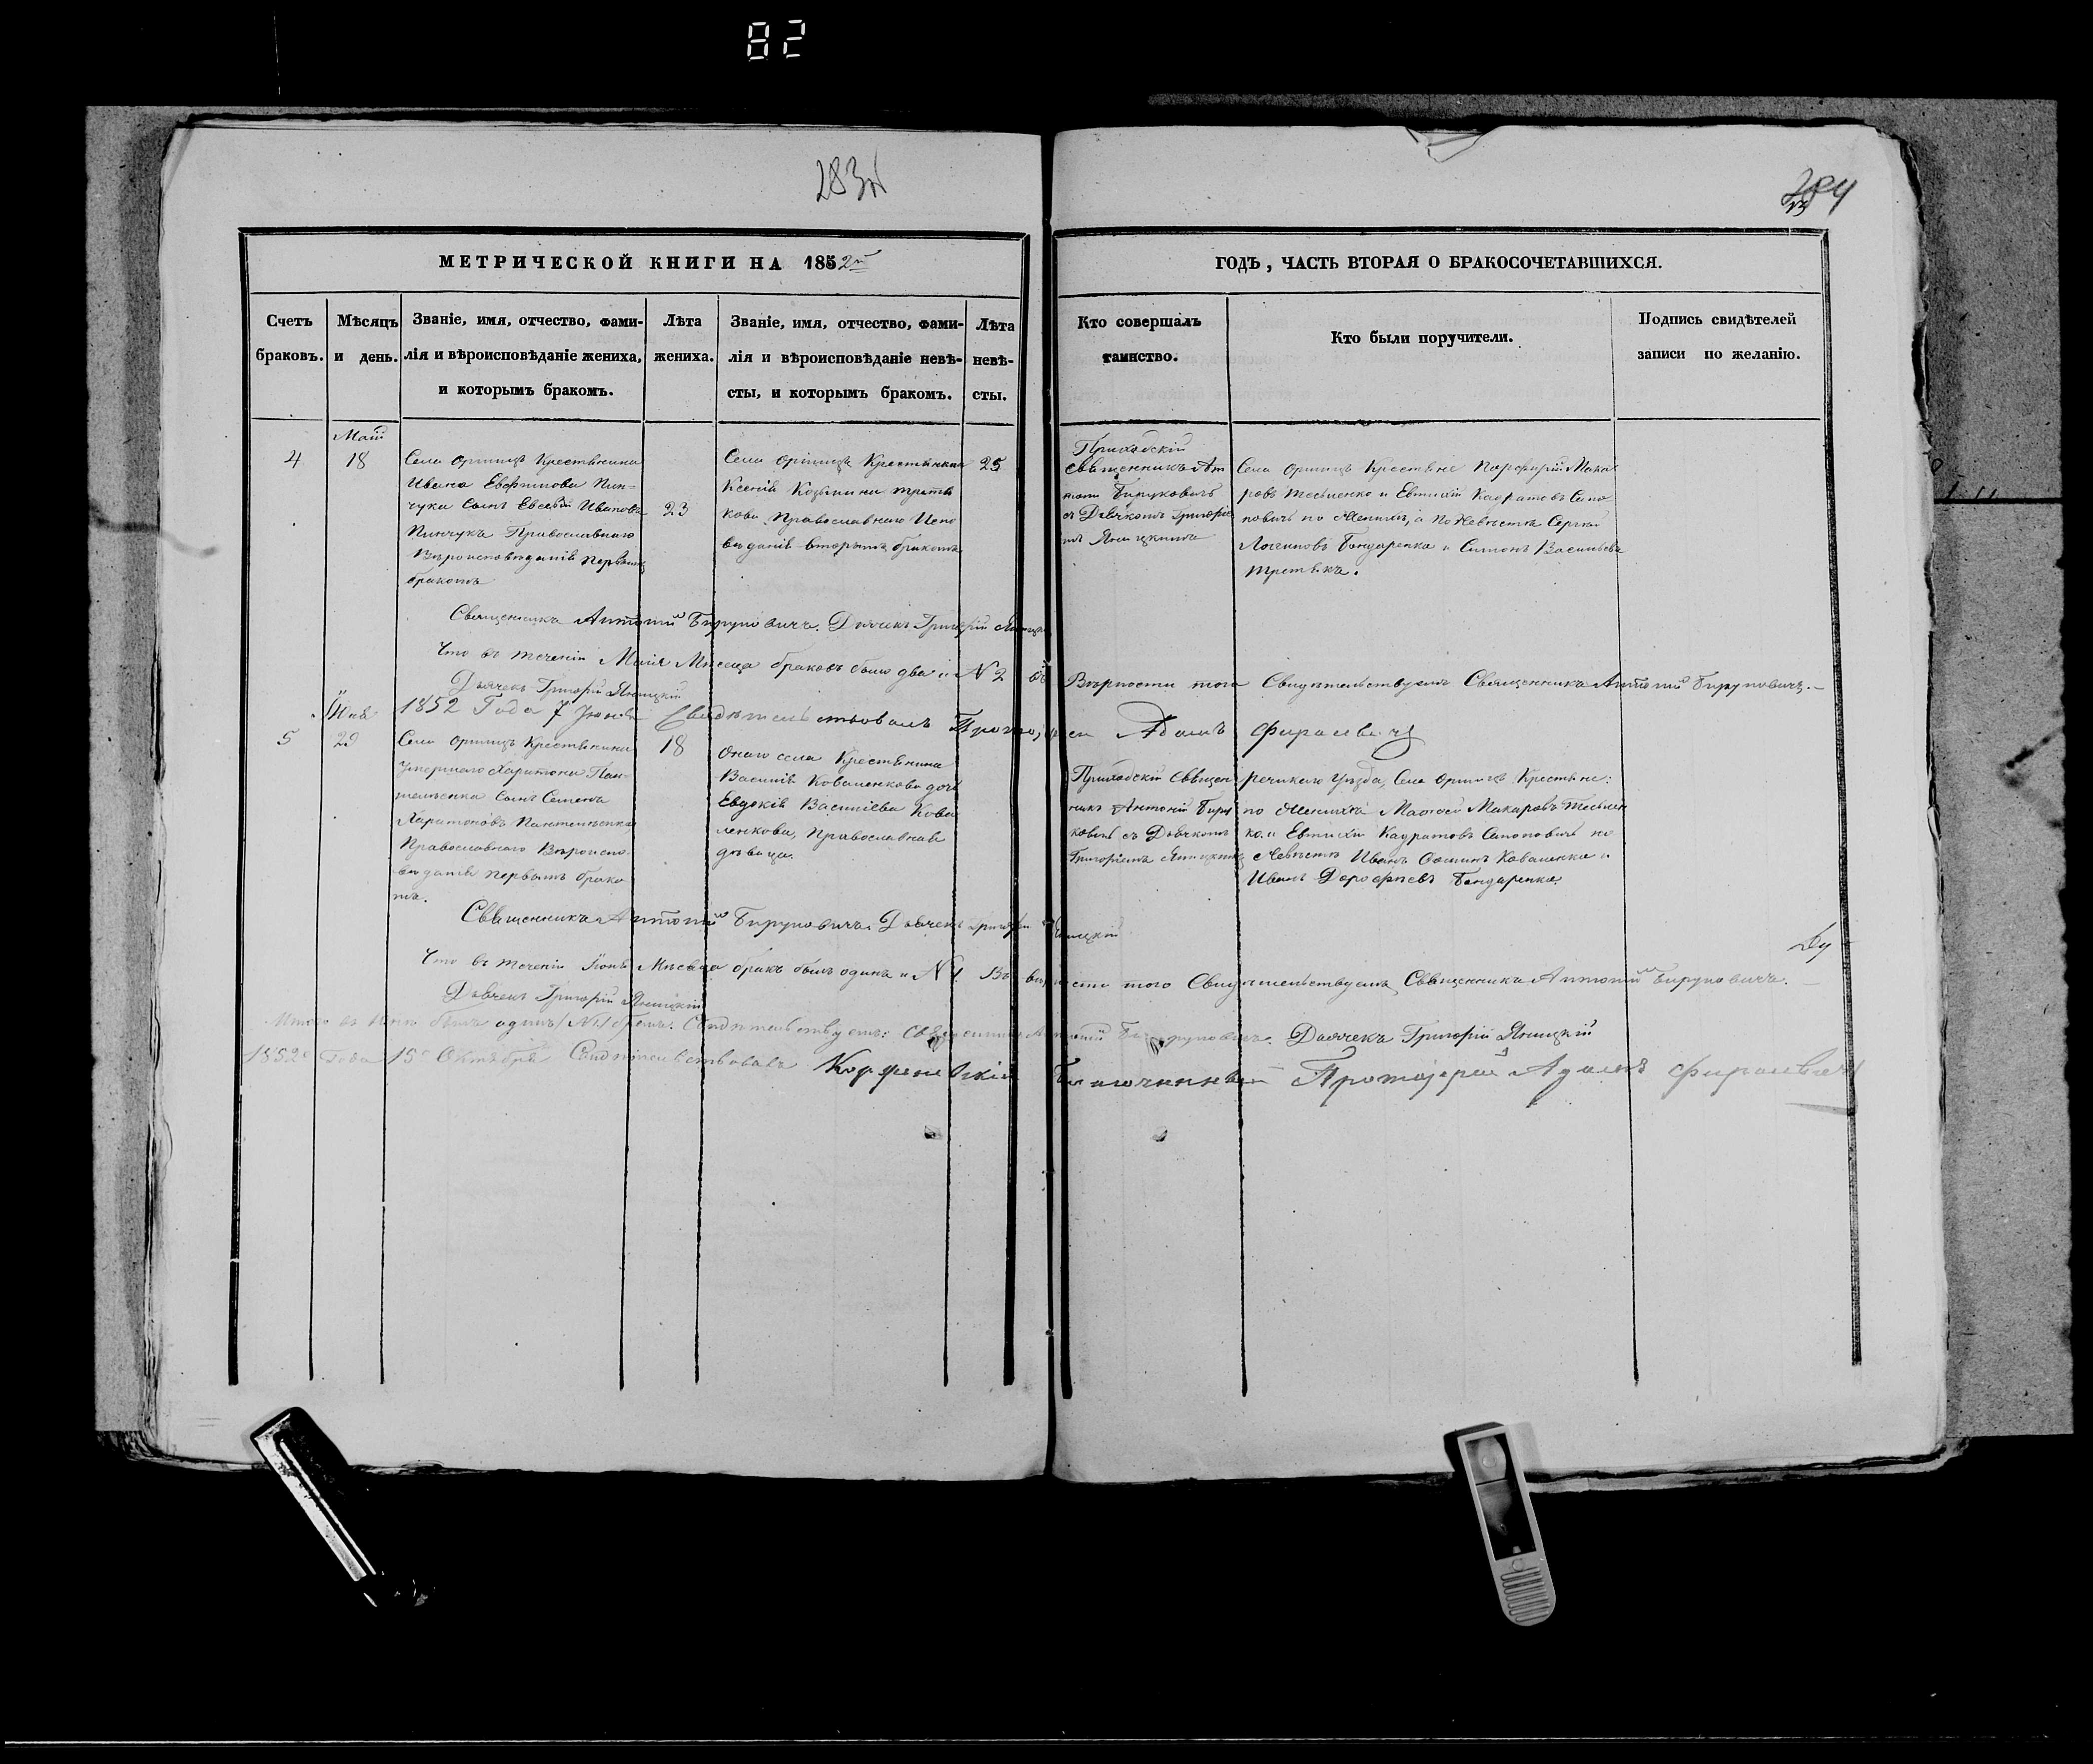 82
283
284
МЕТРИЧЕСКОЙ КНИГИ НА 1852й
ГОДЪ, ЧАСТЬ ВТОРАЯ О БРАКОСОЧЕТАВШИХСЯ.
Счетъ
браковъ.
Мѣсяцъ
и день.
Званіе, имя, отчество, фами-
лія и вѣроисповѣданіе жениха,
и которымъ бракомъ.
Лѣта
жениха.
Званіе, имя, отчество, фами-
лія и вѣроисповѣданіе невѣ-
сты, и которымъ бракомъ.
Лѣта
невѣ-
сты.
Кто совершалъ
таинство.
Кто были поручители.
Подпись свидѣтелей
записи по желанію.
4
Май
18
Села Крестьянина
Ивана Евфимова Пин-
чука Сынъ Евсевій Ивановъ
Пинчукъ Православнаго
Вѣроисповѣданія первымъ
бракомъ
23
Села Крестьянка
Ксенія Козьмина Треть
кова Православнаго Испо
вѣданія вторымъ бракомъ
25
Приходскій
Священникъ Ан
тоній Бируковичъ
съ Дьячкомъ Григорiе
мъ Яницкимъ
Села Крестьяне Порфирій Мака
ровъ Тесленко и Евтихій Кодратовъ Сапо
новичъ по Женихѣ, а по Невѣстѣ Сергѣй
Логиновъ Бондаренко и Симонъ Васильевъ
Третьякъ.
Священникъ Антоній Бируковичъ. Дьячекъ Григорій Яницкій
Что въ теченіи Маія Мѣсяца браковъ было два и № 2 въ Вѣрности того Свидѣтельствуемъ Священникъ Антоній Бируковичъ.
Дьячекъ Григорій Яницкій
1852 Года 7 Іюня Свидѣтельствовалъ Протоіерей Адамъ Фиралевичъ
5
Іюня
29
Села Крестьянина
умершаго Харитона Пан-
телѣенка Сынъ Семенъ
Харитоновъ Пантелѣенко
Православнаго Вѣроиспо-
вѣданія первымъ брако
мъ.
18
Онаго села Крестьянина
Василія Коваленкова дочь
Евдокія Василіева Кова
ленкова, Православная
дѣвица.
Приходскій Священ
никъ Антоній Биру
ковичъ съ Дьячкомъ
Григоріемъ Яницкимъ
речицкаго Уѣзда, Села Крестьяне:
по Женихѣ Матѳей Макаровъ Теслен
ко и Евтихій Кадратовъ Сапоновичъ по
Невѣстѣ Иванъ Коваленко и
Иванъ Дорофѣевъ Бондаренко.
Священникъ Антоній Бируковичъ. Дьячекъ Григорій Яницкій
Что въ теченіи Іюня Мѣсяца бракъ былъ одинъ и № 1. Въ вѣрности того Свидѣтельствуемъ Священникъ Антоній Бируковичъ.
Дьячекъ Григорій Яницкій
Итого въ Іюнѣ былъ одинъ № 1 бракъ. Свидѣтельствуемъ: Священникъ Антоній Бируковичъ. Дьячекъ Григорій Яницкій
1852 Года 15 Октября Свидѣтельствовалъ Благочинный Протоіерей Адамъ Фиралевичъ